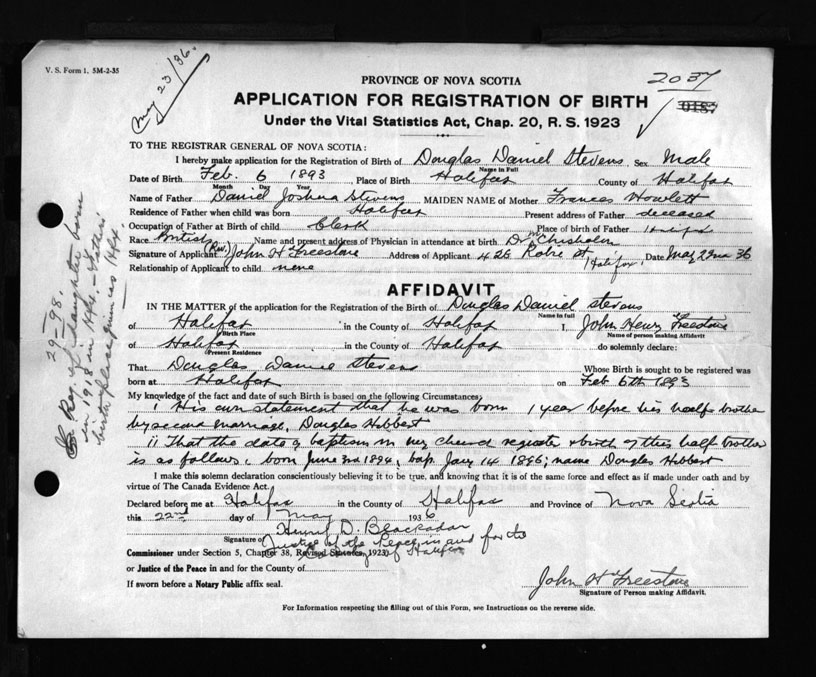 V. S. Form 1. 5M-2-35
May 23/36.
PROVINCE OF NOVA SCOTIA
2037
APPLICATION FOR REGISTRATION OF BIRTH
Under the Vital Statistics Act, Chap. 20, R. S. 1923
TO THE REGISTRAR GENERAL OF NOVA SCOTIA:
I hereby make application for the Registration of Birth of Douglas Daniel Stevens Sex Male
Name in Full
Date of Birth Feb. 6 1893, Place of Birth Halifax County of Halifax
Month Day Year
Name of Father Daniel Joshua Stevens MAIDEN NAME of Mother Frances Howlett
Residence of Father when child was born Halifax Present address of Father deceased
Occupation of Father at Birth of child Clerk Place of birth of Father Halifax
Race British Name and present address of Physician in attendance at birth Dr Chisholm
Signature of Applicant (Rev.) John H Freestone Address of Applicant 426 Robie St Halifax, Date May 22nd 36
Relationship of Applicant to child none
AFFIDAVIT
IN THE MATTER of the application for the Registration of the Birth of Douglas Daniel Stevens
Name in full
of Halifax in the County of Halifax I, John Henry Freestone
Birth Place Name of person making Affidavit
of Halifax in the County of Halifax do solemnly declare:
Present Residence
That Douglas Daniel Stevens Whose Birth is sought to be registered was
born at Halifax on Feb 6th 1893
My knowledge of the fact and date of such Birth is based on the following Circumstances:
1 His own statement that he was born 1 year before his half brother
by second marriage, Douglas Hebbert
11 That the date of baptism in my church register & birth of this half brother
is as follows: born June 3rd 1894, bap. Jany 14 1896; name Douglas Hebbert
I make this solemn declaration conscientiously believing it to be true, and knowing that it is of the same force and effect as if made under oath and by
virtue of The Canada Evidence Act.
Declared before me at Halifax in the County of Halifax and Province of Nova Scotia
this 22nd day of May 1936
Henry D. Blackadar
Signature of
Justice of the Peace in and for the
County of Halifax
Commissioner under Section 5, Chapter 38, Revised Statutes, 1923)
or Justice of the Peace in and for County of
If sworn before a Notary Public affix seal.
John H Freestone
Signature of Person making Affidavit.
For Information respecting the filling out of this Form, see Instructions on the reverse side.
29-98.
Reg. of daughter born
in 1918 in Hfx. - Father's
birthplace given as Hfx.